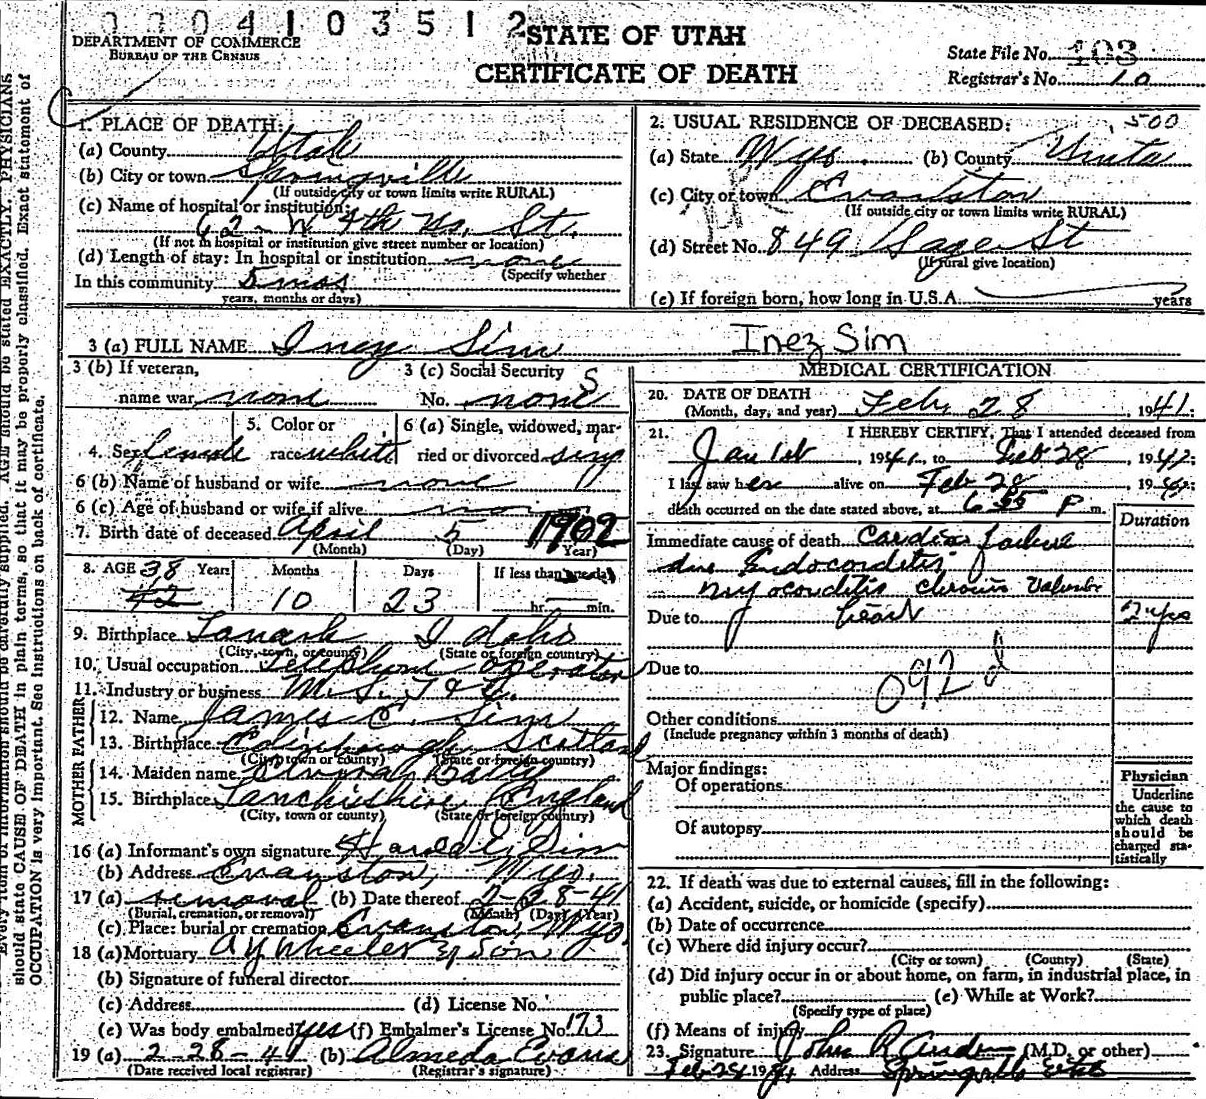 0004103512
DEPARTMENT OF COMMERCE
BUREAU OF THE CENSUS
STATE OF UTAH
CERTIFICATE OF DEATH
State File No. 103
Registrar's No. 10
1. PLACE OF DEATH:
(a) County Utah
(b) City or town Springville
(If outside city or town limits write RURAL)
(c) Name of hospital or institution:
62 - W 4th No. St.
(If not in hospital or institution give street number or location)
(d) Length of stay: In hospital or institution none
(Specify whether
In this community 5 mos
years, months or days)
2. USUAL RESIDENCE OF DECEASED: 500
(a) State Wyo. (b) County Uinta
(c) City or town Evanston
(If outside city or town limits write RURAL)
(d) Street No. 849 Sage St
(If rural give location)
(e) If foreign born, how long in U.S.A. years
3 (a) FULL NAME Inez Sim Inez Sim
3 (b) If veteran, name war none
3 (c) Social Security No. none
4. Sex female
5. Color or race white
6 (a) Single, widowed, married or divorced sing
6 (b) Name of husband or wife none
6 (c) Age of husband or wife if alive
7. Birth date of deceased April 5 1902
(Month) (Day) (Year)
8. AGE 38 42 Years Months 10 Days 23 If less than one day hr. min.
9. Birthplace Lanark Idaho
(City, town, or county) (State or foreign country)
10. Usual occupation Telephone operator
11. Industry or business M. S. T & T.
FATHER
12. Name James C. Sim
13. Birthplace Edinborough Scotland
(City, town or county) (State or foreign country)
MOTHER
14. Maiden name
15. Birthplace Lanchieshire England
(City, town or county) (State or foreign country)
16 (a) Informant's own signature Harold E. Sim
(b) Address Evanston, Wyo.
17 (a) removal (b) Date thereof 2-28-41
(Burial, cremation, or removal) (Month) (Day) (Year)
(c) Place: burial or cremation Evanston, Wyo
18 (a) Mortuary A Y Wheeler & Son
(b) Signature of funeral director
(c) Address (d) License No.
(e) Was body embalmed yes (f) Embalmer's License No. 173
19 (a) 2-28-41 (b) Almeda Evans
(Date received local registrar) (Registrar's signature)
MEDICAL CERTIFICATION
20. DATE OF DEATH
(Month, day, and year) Feb 28, 1941;
21. I HEREBY CERTIFY, That I attended deceased from
Jan 1st, 1941, to Feb 28, 1941;
I last saw her alive on Feb 28 1941;
death occurred on the date stated above, at 6:55 P m.
Duration
Immediate cause of death Cardiac failure
due Endocorditis
myocorditis chronic Valvular
Due to heart 2 yrs
Due to
092 d
Other conditions
(Include pregnancy within 3 months of death)
Major findings:
Of operations
Of autopsy
Physician
Underline
the cause to
which death
should be
charged sta-
tistically
22. If death was due to external causes, fill in the following:
(a) Accident, suicide, or homicide (specify)
(b) Date of occurrence
(c) Where did injury occur?
(City or town) (County) (State)
(d) Did injury occur in or about home, on farm, in industrial place, in
public place? (e) While at Work?
(Specify type of place)
(f) Means of injury
23. Signature John R (M.D. or other)
Feb 28, 1941 Address Springville Utah
Every item of information should be carefully supplied. AGE should be stated EXACTLY. PHYSICIANS
should state CAUSE OF DEATH in plain terms, so that it may be properly classified. Exact statement of
OCCUPATION is very important. See instructions on back of certificate.